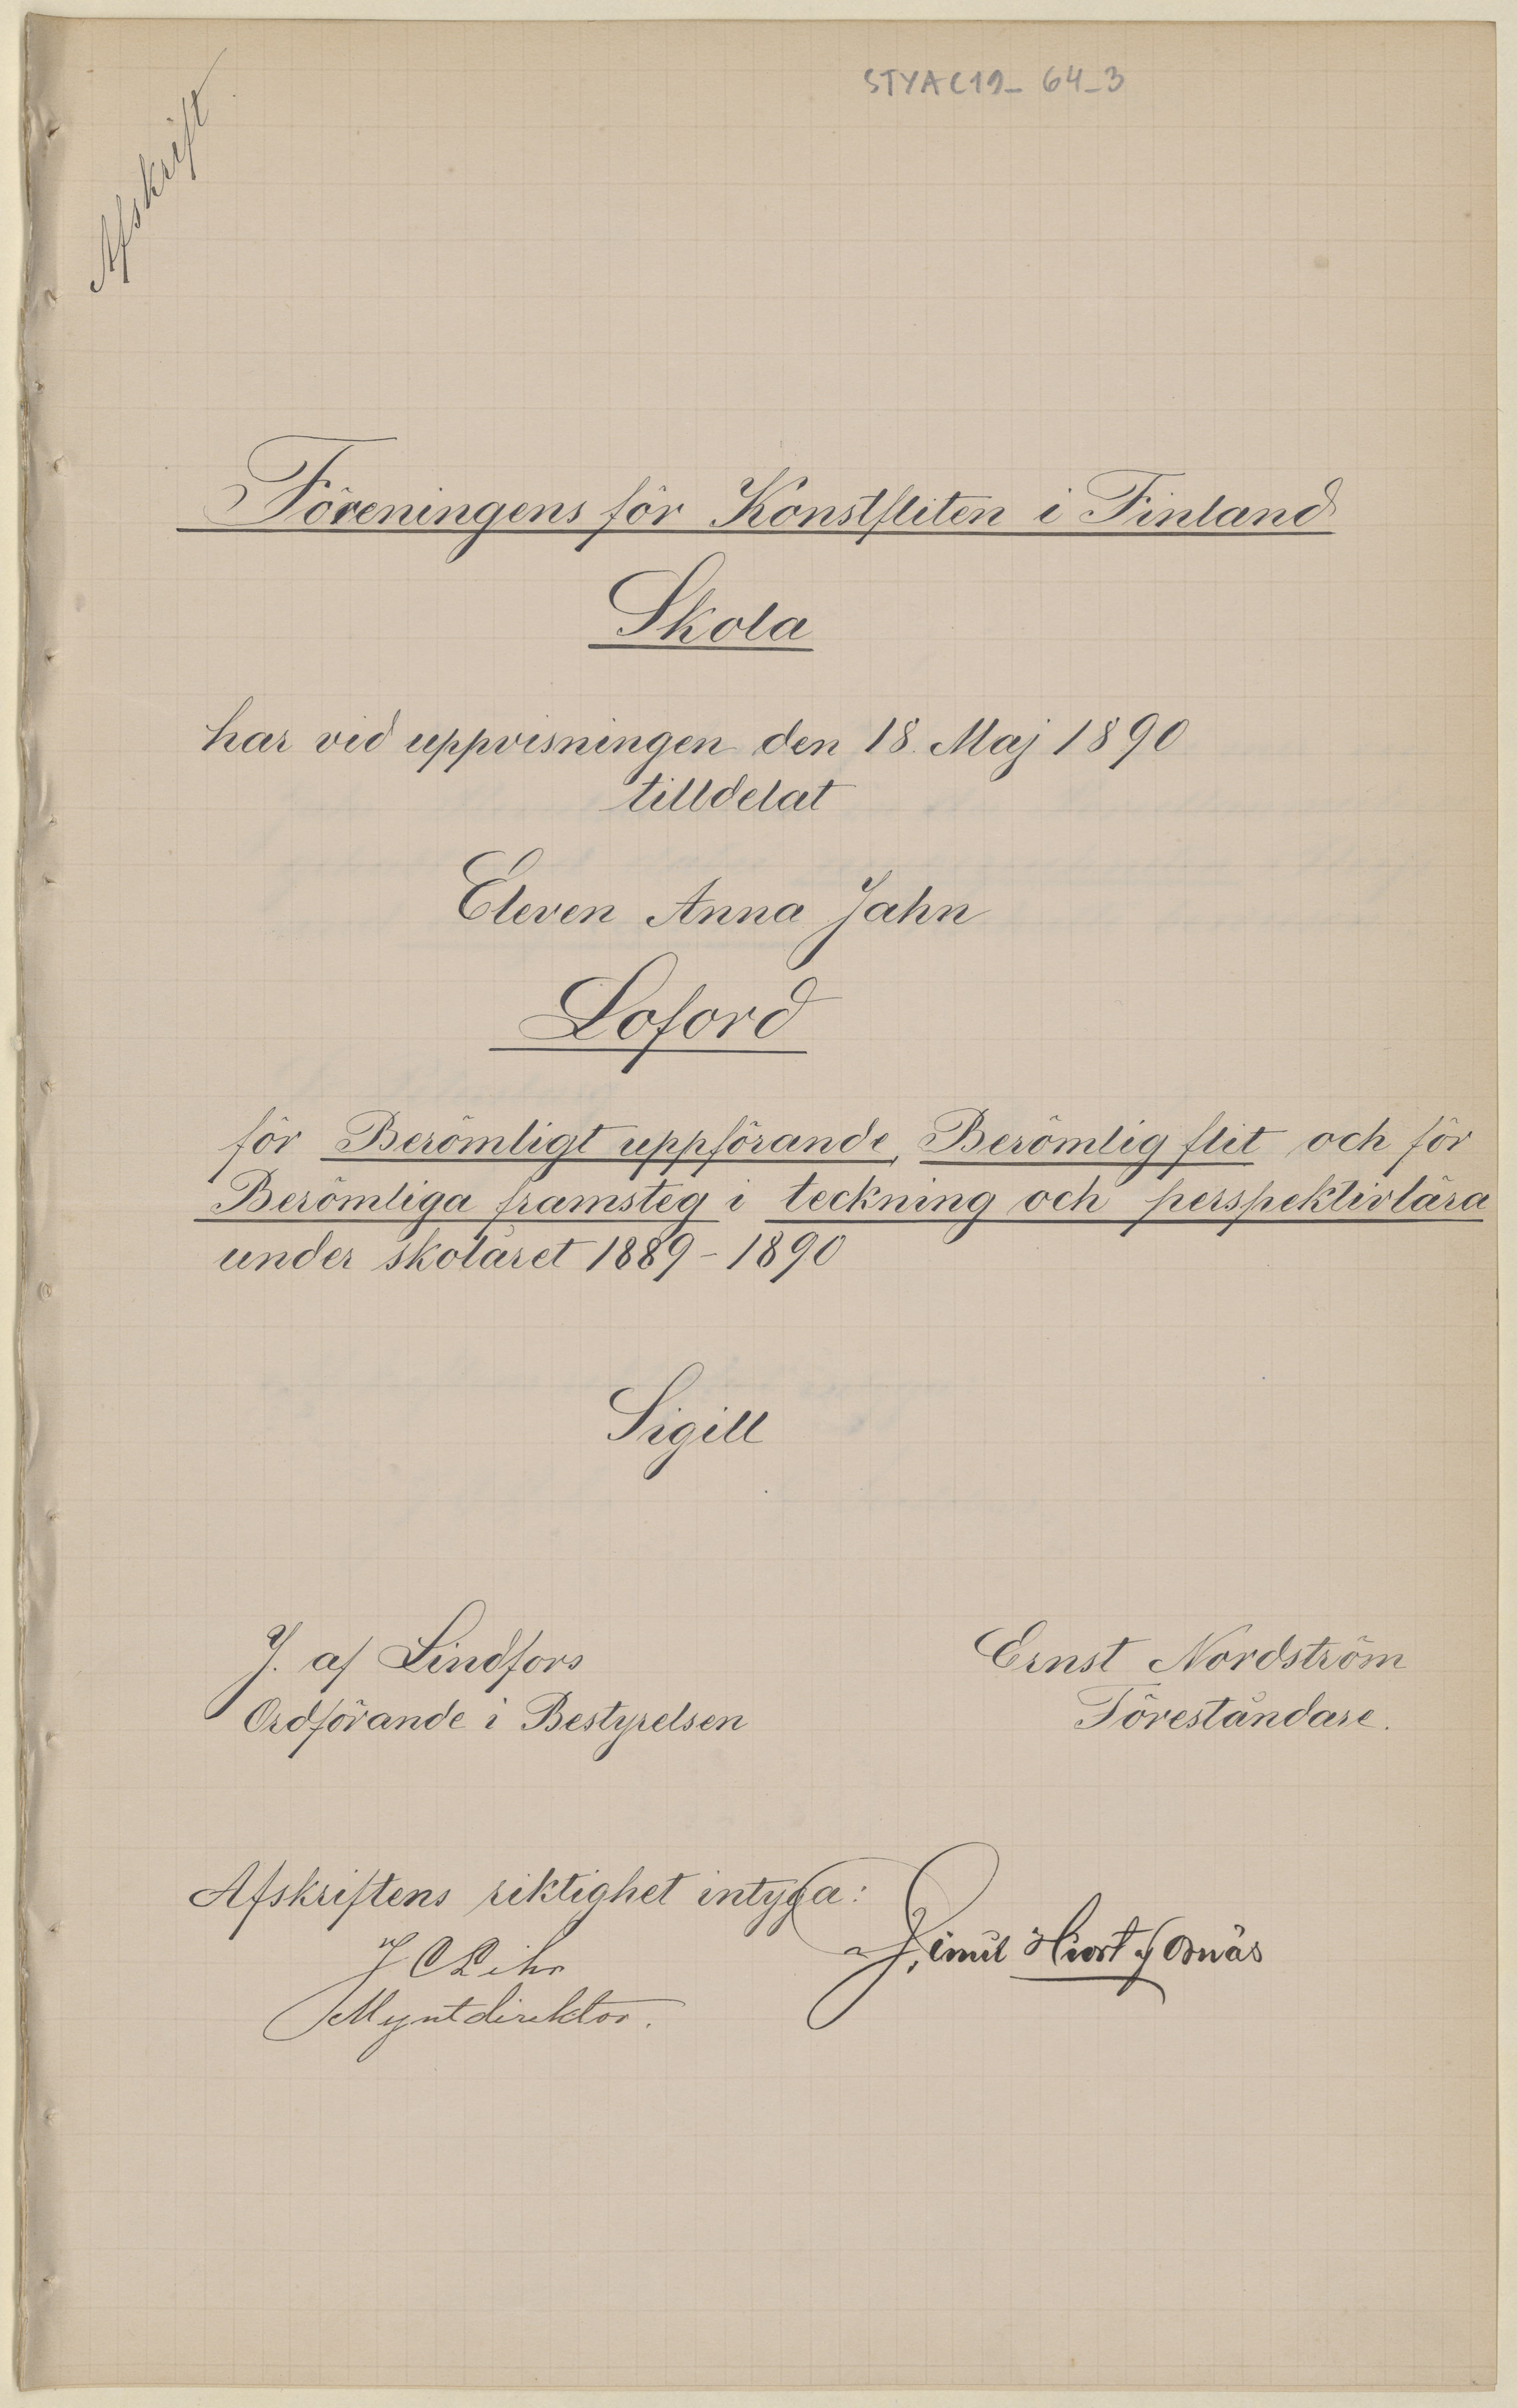 STYAC19_64_3
Afskrift
Föreningens för Konstfliten i Finland
Skola
har vid uppvisningen den 18. Maj 1890
tilldelat
Eleven Anna Jahn
Loford
för Berömligt uppförande, Berömlig flit och för
Berömliga framsteg i teckning och perspektivlära
under skolåret 1889-1890
Sigill
J. af Lindfors
Ordförande i Bestyrelsen
Ernst Nordström
Föreståndare.
Afskriftens riktighet intyga:
J C Lihr
Myntdirektor.
Emil Hiort af Ornäs